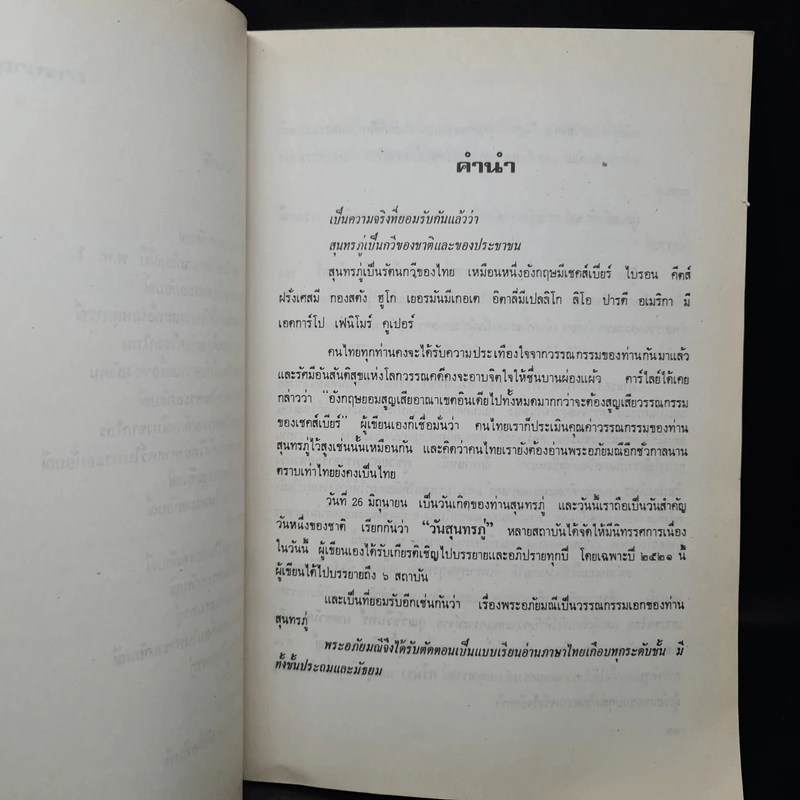 คำนำ
เป็นความจริงที่ยอมรับกันแล้วว่า
สุนทรภู่เป็นกวีของชาติและของประชาชน
สุนทรภู่เป็นรัตนกวีของไทย เหมือนหนึ่งอังกฤษมีเชคส์เบียร์ ไบรอน คีตส์
ฝรั่งเศสมี กองสตัง ฮูโก เยอรมันมีเกอเต อิตาลีมีเปลลิโก ลิโอ ปารดี อเมริกา มี
เอดการ์โป เฟนิโมร์ คูเปอร์
คนไทยทุกท่านคงจะได้รับความประเทืองใจจากวรรณกรรมของท่านกันมาแล้ว
และรัศมีอันสันติสุขแห่งโลกวรรณคดีคงจะอาบจิตใจให้ชื่นบานผ่องแผ้ว คาร์ไลย์ได้เคย
กล่าวว่า "อังกฤษยอมสูญเสียอาณาเขตอินเดียไปทั้งหมดมากกว่าจะต้องสูญเสียวรรณกรรม
ของเชคส์เบียร์" ผู้เขียนเองก็เชื่อมั่นว่า คนไทยเราก็ประเมินคุณค่าวรรณกรรมของท่าน
สุนทรภู่ไว้สูงเช่นนั้นเหมือนกัน และคิดว่าคนไทยเรายังต้องอ่านพระอภัยมณีอีกชั่วกาลนาน
ตราบเท่าไทยยังคงเป็นไทย
วันที่ 26 มิถุนายน เป็นวันเกิดของท่านสุนทรภู่ และวันนี้เราถือเป็นวันสำคัญ
วันหนึ่งของชาติ เรียกกันว่า "วันสุนทรภู่" หลายสถาบันได้จัดให้มีนิทรรศการเนื่อง
ในวันนี้ ผู้เขียนเองได้รับเกียรติเชิญไปบรรยายและอภิปรายทุกปี โดยเฉพาะปี ๒๕๒๑ นี้
ผู้เขียนได้ไปบรรยายถึง ๖ สถาบัน
และเป็นที่ยอมรับอีกเช่นกันว่า เรื่องพระอภัยมณีเป็นวรรณกรรมเอกของท่าน
สุนทรภู่
พระอภัยมณีจึงได้รับตัดตอนเป็นแบบเรียนอ่านภาษาไทยเกือบทุกระดับชั้น มี
ทั้งชั้นประถมและมัธยม